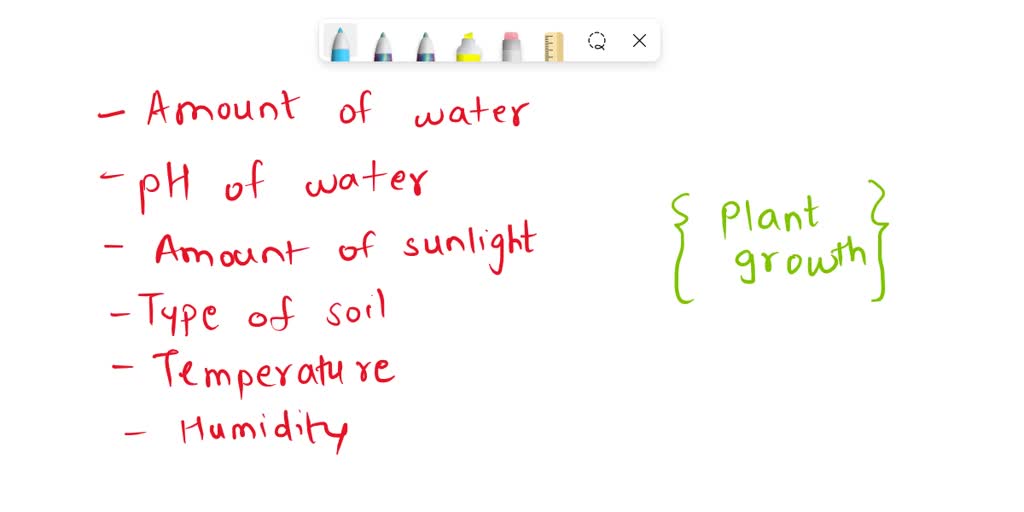 - Amount of water
- pH of water
- Amount of sunlight
- Type of soil
- Temperature
- Humidity
{ Plant }
growth